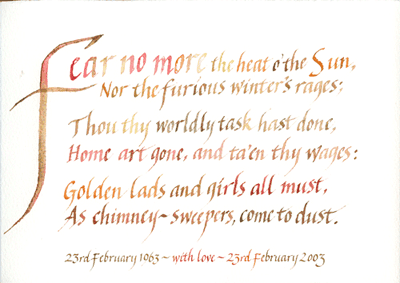 Fear no more the heat o'the Sun,
Nor the furious winter's rages;
Thou thy worldly task hast done,
Home art gone, and ta'en thy wages:
Golden lads and girls all must,
As chimney-sweepers, come to dust.
23rd February 1963 ~ with love ~ 23rd February 2003